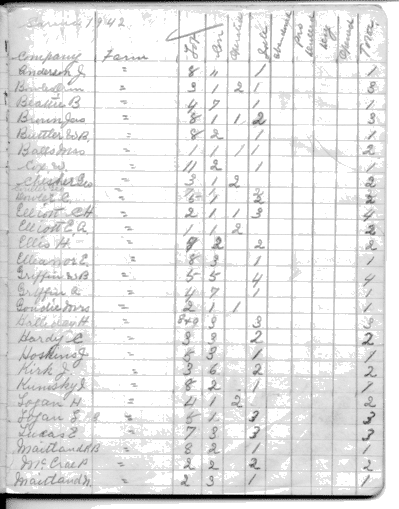 1942
Lot Con Quantity Sold Total
Company Farm
Anderson J. " 8 11 1 1
" 3 1 2 1 3
Beattie B " 4 7 1 1
Brown Jas " 8 1 1 2 3
Buttler W.B. " 8 2 1 1
Batts Mrs " 1 1 1 1 2
Cox W. " 11 2 1 1
Chesher Geo " 3 1 2 2
" 5 1 2 2
Elliott C H " 2 1 1 3 4
Elliott E. A " 1 1 2 2
Ellis H. " 9 2 2 2
Elleanor E. " 8 3 1 1
Griffin W B " 5 5 4 4
Griffin A " 4 7 1 1
Mrs " 2 1 1 1
Halliday H " 8+9 3 3 3
Hardy C " 3 3 2 2
Hoskins J " 8 3 1 1
Kirk J " 3 6 2 2
J. " 8 2 1 1
Logan H. " 4 1 2 2
Logan S. " 5 1 3 3
Lucas E " 7 3 3 3
Maitland R B " 8 2 1 1
McCrae P " 2 2 2 2
Maitland N. " 2 3 1 1